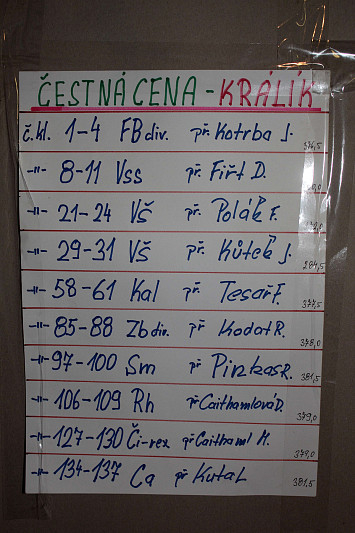 ČESTNÁ CENA - KRÁLÍK
č.kl. 1-4 FB div. př. Kotrba J. 376,5
-"- 8-11 Vss př. Fiřt D.
-"- 21-24 VŠ př. Polák F.
-"- 29-31 VŠ př. Kůtek J. 284,5
-"- 58-61 Kal př. Tesař F. 377,5
-"- 85-88 Zb div. př. Kodat R. 378,0
-"- 97-100 Sm př Pinkas R. 381,5
-"- 106-109 Rh př Caithamlová D. 379,0
-"- 127-130 Či-rex př Caithaml M. 379,0
-"- 134-137 Ca př Kuta L 381,5